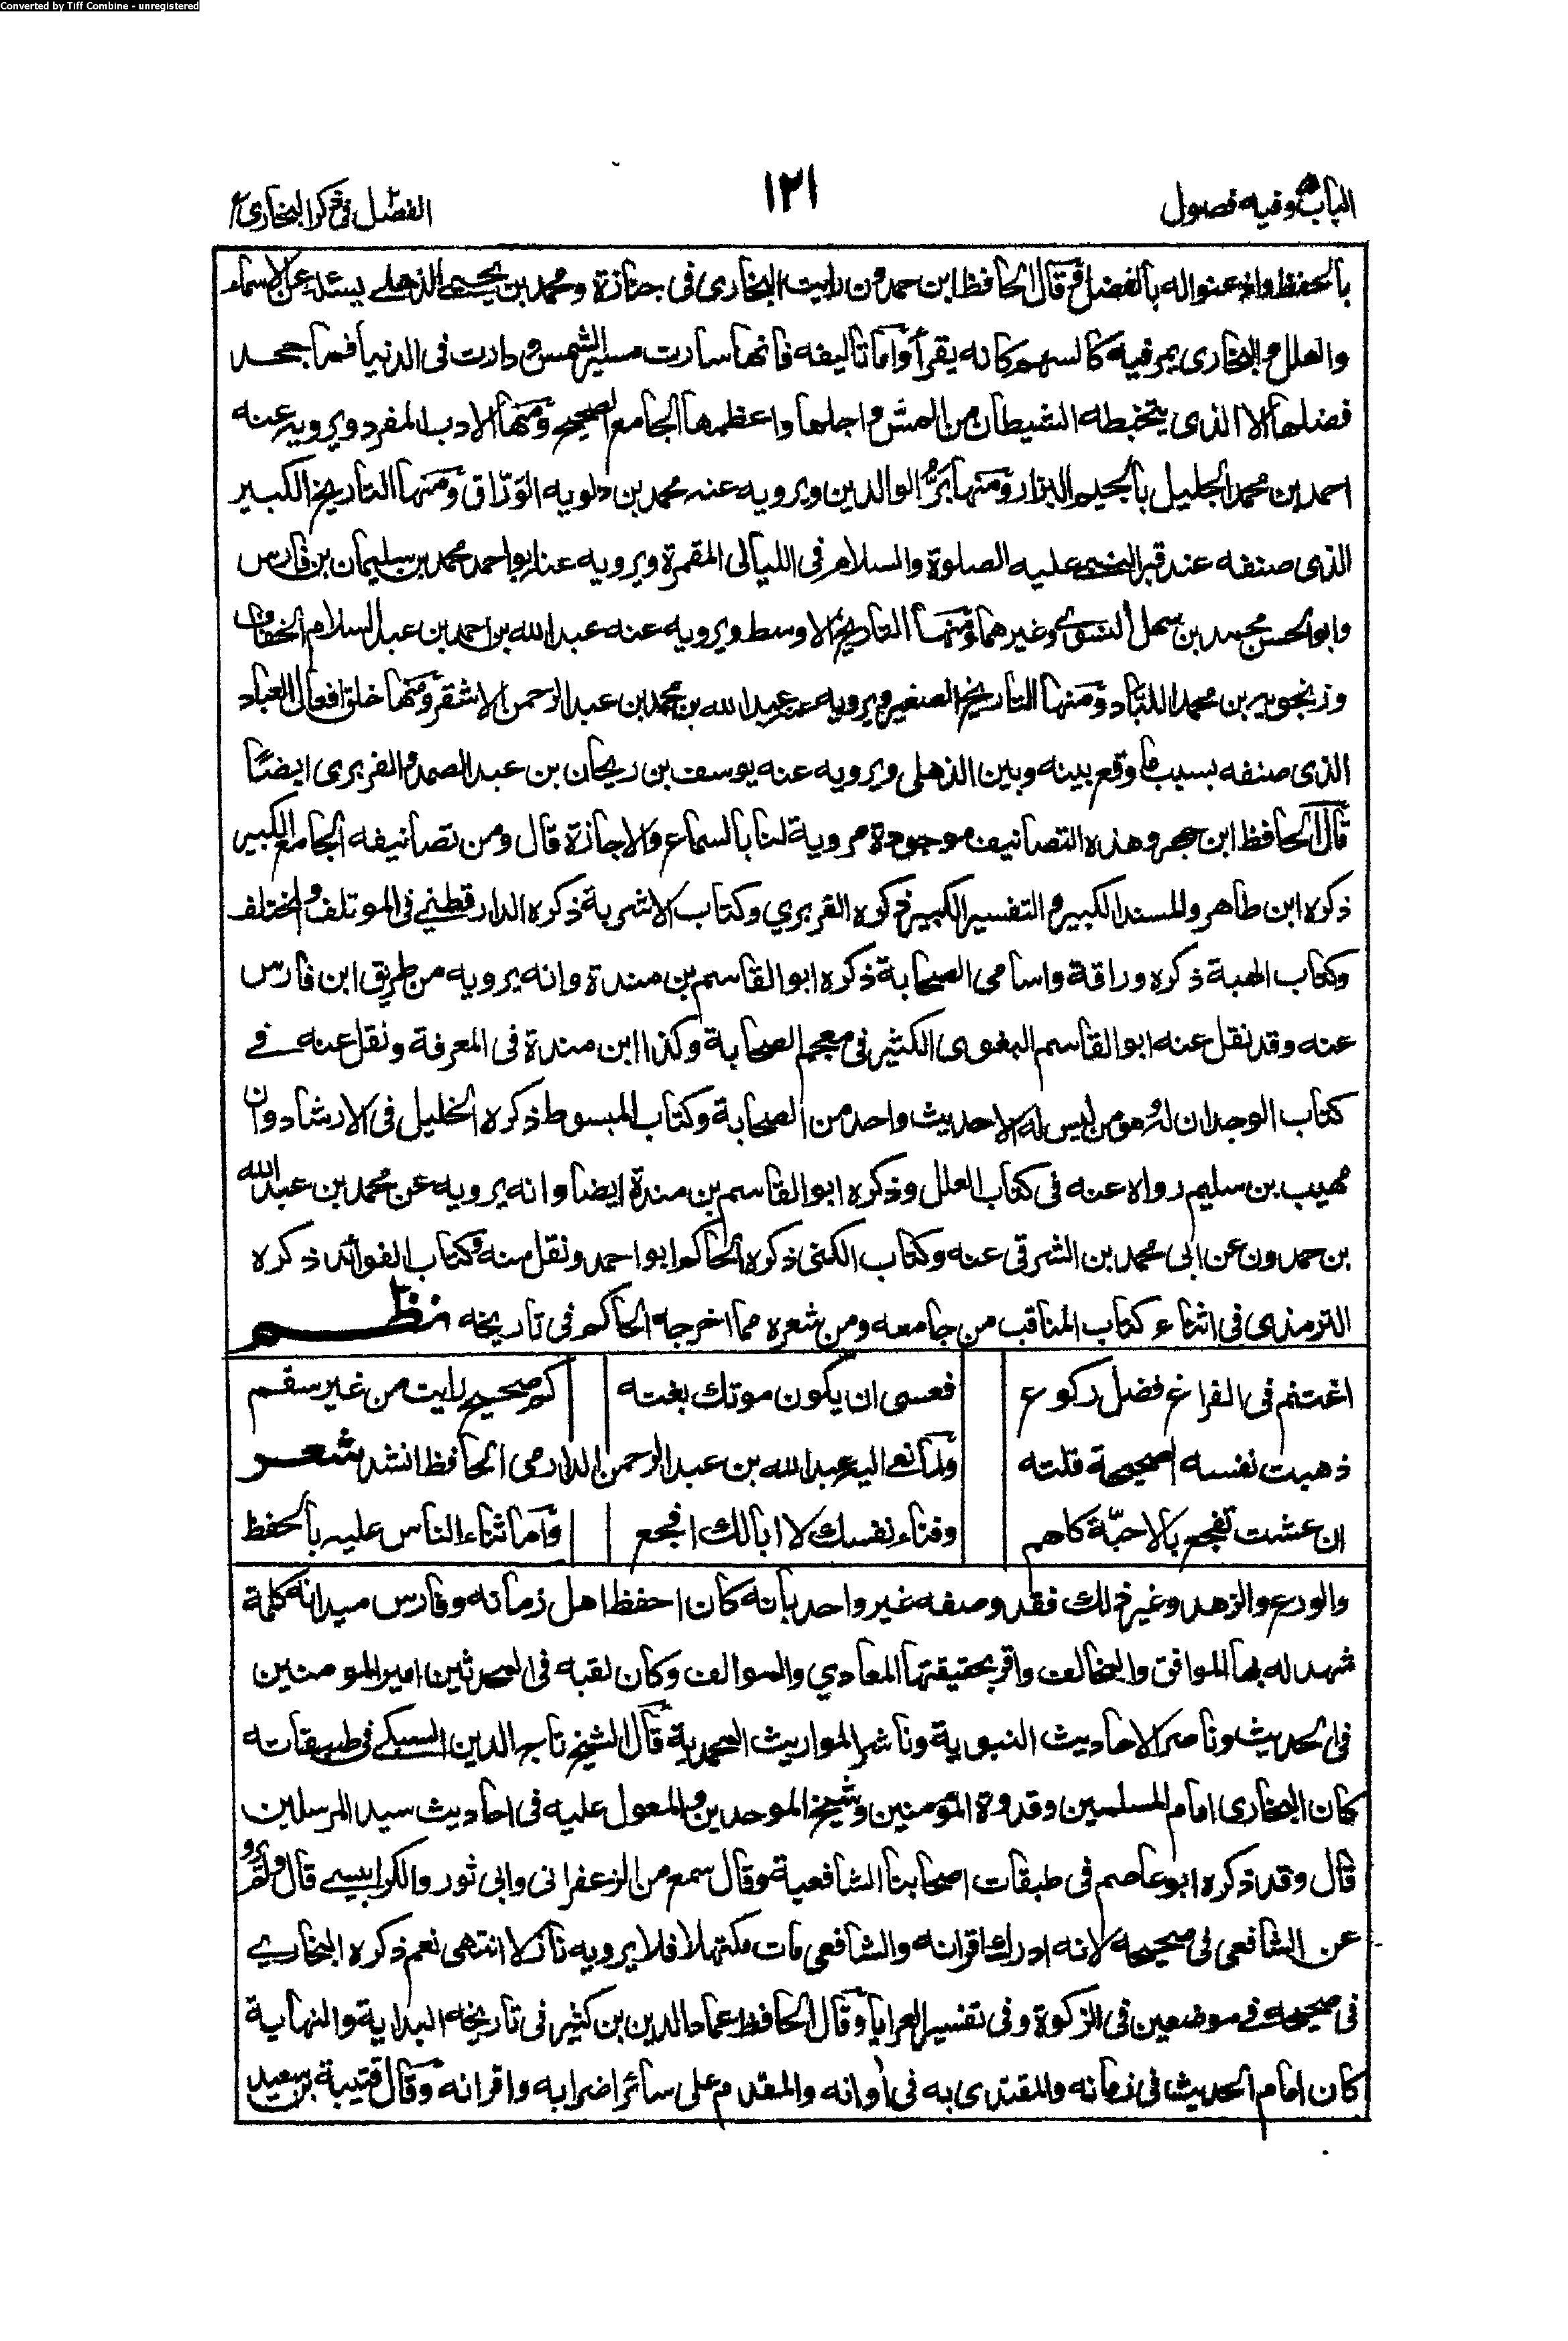 Converted by Tiff Combine - unregistered
الباب وفيه فصول
١٢١
الفصل فى ذكر البخارى
بالحفظ واذعنوا له بالفضل قال الحافظ ابن حمدون رايت البخارى فى جنازة ومحمد بن يحيى الذهلى يسئله عن الاسماء
والعلل والبخارى يمر فيه كالسهم كانه يقرأ واما تاليفه فانها سارت مسير الشمس ودارت فى الدنيا فما جحد
فضلها الا الذى يتخبطه الشيطان من المس واجلها واعظمها الجامع الصحيح ومنها الادب المفرد ويرويه عنه
احمد بن محمد الجليل بالجيم البزار ومنها برُّ الوالدين ويرويه عنه محمد بن دلويه الورّاق ومنها التاريخ الكبير
الذى صنفه عند قبر النبى عليه الصلوة والسلام فى الليالى المقمرة ويرويه عنه ابو احمد محمد بن سليمان بن فارس
وابو الحسن محمد بن سهل النسوى وغيرهما ومنها التاريخ الاوسط ويرويه عنه عبد الله بن احمد بن عبد السلام الخفاف
وزنجويه بن محمد اللباد ومنها التاريخ الصغير ويرويه عنه عبد الله بن محمد بن عبد الرحمن الاشقر ومنها خلق افعال العباد
الذى صنفه بسبب ما وقع بينه وبين الذهلى ويرويه عنه يوسف بن ريحان بن عبد الصمد والفربرى ايضًا
قال الحافظ ابن حجر وهذه التصانيف موجودة مروية لنا بالسماع والاجازة قال ومن تصانيفه الجامع الكبير
ذكره ابن طاهر والمسند الكبير والتفسير الكبير ذكره الفربري وكتاب الاشربة ذكره الدارقطنى فى الموتلف والمختلف
وكتاب الهبة ذكره وراقة واسامى الصحابة ذكره ابو القاسم بن مندة وانه يرويه من طريق ابن فارس
عنه وقد نقل عنه ابو القاسم البغوى الكثير فى معجم الصحابة وكذا ابن مندة فى المعرفة ونقل عنه فى
كتاب الوجدان له وهو من ليس له الا حديث واحد من الصحابة وكتاب المبسوط ذكره الخليل فى الارشاد وان
مهيب بن سليم رواه عنه فى كتاب العلل وذكره ابو القاسم بن مندة ايضا وانه يرويه عن محمد بن عبد الله
بن حمدون عن ابى محمد بن الشرقى عنه وكتاب الكنى ذكره الحاكم ابو احمد ونقل منه وكتاب الفوائد ذكره
الترمذى فى اثناء كتاب المناقب من جامعه ومن شعره مما اخرجه الحاكم فى تاريخه نظم
اغتنم فى الفراغ فضل ركوع فعسى ان يكون موتك بغته كم صحيح رايت من غير سقم
ذهبت نفسه الصحيحة فلته ولما نعى اليه عبد الله بن عبد الرحمن الدارمى الحافظ انشد شعر
ان عشت تفجع بالاحبّة كلهم وفناء نفسك لا ابالك افجع واما ثناء الناس عليه بالحفظ
والورع والزهد وغير ذلك فقد وصفه غير واحد بانه كان احفظ اهل زمانه وفارس ميدانه كلمة
شهد له بها الموافق والمخالف واقر بحقيقتها المعادي والموالف وكان لقبه فى المحدثين امير المومنين
فى الحديث وناصر الاحاديث النبوية وناشر المواريث المحمدية قال الشيخ تاج الدين السبكى فى طبقاته
كان البخارى امام المسلمين وقدوة المؤمنين وشيخ الموحدين والمعول عليه فى احاديث سيد المرسلين
قال وقد ذكره ابو عاصم فى طبقات اصحابنا الشافعية وقال سمع من الزعفرانى وابى ثور والكرابيسى قال ولم يرو
عن الشافعى فى صحيحه لانه ادرك اقرانه والشافعى مات مكتهلا فلا يرويه نازلا انتهى نعم ذكره البخارى
فى صحيحه فى موضعين فى الزكوة وفى تفسير العرايا وقال الحافظ عماد الدين بن كثير فى تاريخه البداية والنهاية
كان امام الحديث فى زمانه والمقتدى به فى اوانه والمقدم على سائر اضرابه واقرانه وقال قتيبة بن سعيد